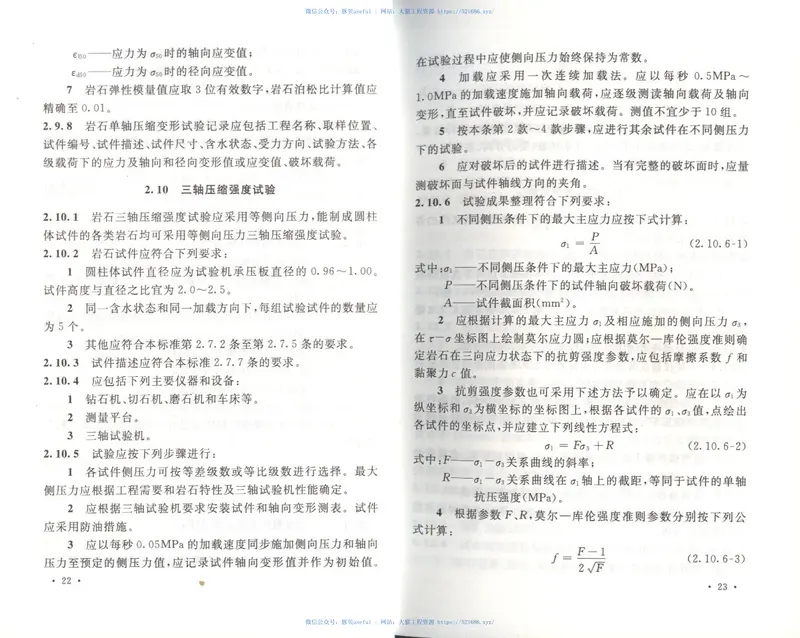 微信公众号：豚贝useful | 网站：大猫工程资源 https://521686.xyz/
ε₁₅₀——应力为 σ₅₀ 时的轴向应变值；
ε_d50——应力为 σ₅₀ 时的径向应变值。
7 岩石弹性模量值应取 3 位有效数字，岩石泊松比计算值应
精确至 0.01。
2.9.8 岩石单轴压缩变形试验记录应包括工程名称、取样位置、
试件编号、试件描述、试件尺寸、含水状态、受力方向、试验方法、各
级载荷下的应力及轴向和径向变形值或应变值、破坏载荷。
2.10 三轴压缩强度试验
2.10.1 岩石三轴压缩强度试验应采用等侧向压力，能制成圆柱
体试件的各类岩石均可采用等侧向压力三轴压缩强度试验。
2.10.2 岩石试件应符合下列要求：
1 圆柱体试件直径应为试验机承压板直径的 0.96～1.00。
试件高度与直径之比宜为 2.0～2.5。
2 同一含水状态和同一加载方向下，每组试验试件的数量应
为 5 个。
3 其他应符合本标准第 2.7.2 条至第 2.7.5 条的要求。
2.10.3 试件描述应符合本标准 2.7.7 条的要求。
2.10.4 应包括下列主要仪器和设备：
1 钻石机、切石机、磨石机和车床等。
2 测量平台。
3 三轴试验机。
2.10.5 试验应按下列步骤进行：
1 各试件侧压力可按等差级数或等比级数进行选择。最大
侧压力应根据工程需要和岩石特性及三轴试验机性能确定。
2 应根据三轴试验机要求安装试件和轴向变形测表。试件
应采用防油措施。
3 应以每秒 0.05MPa 的加载速度同步施加侧向压力和轴向
压力至预定的侧压力值，应记录试件轴向变形值并作为初始值。
• 22 •
在试验过程中应使侧向压力始终保持为常数。
4 加载应采用一次连续加载法。应以每秒 0.5MPa～
1.0MPa 的加载速度施加轴向载荷，应逐级测读轴向载荷及轴向
变形，直至试件破坏，并应记录破坏载荷。测值不宜少于 10 组。
5 按本条第 2 款～4 款步骤，应进行其余试件在不同侧压力
下的试验。
6 应对破坏后的试件进行描述。当有完整的破坏面时，应量
测破坏面与试件轴线方向的夹角。
2.10.6 试验成果整理符合下列要求：
1 不同侧压条件下的最大主应力应按下式计算：
σ₁ = P/A (2.10.6-1)
式中：σ₁——不同侧压条件下的最大主应力(MPa)；
P——不同侧压条件下的试件轴向破坏载荷(N)。
A——试件截面积(mm²)。
2 应根据计算的最大主应力 σ₁ 及相应施加的侧向压力 σ₃，
在 τ－σ 坐标图上绘制莫尔应力圆；应根据莫尔－库伦强度准则确
定岩石在三向应力状态下的抗剪强度参数，应包括摩擦系数 f 和
黏聚力 c 值。
3 抗剪强度参数也可采用下述方法予以确定。应在以 σ₁ 为
纵坐标和 σ₃ 为横坐标的坐标图上，根据各试件的 σ₁、σ₃ 值，点绘出
各试件的坐标点，并应建立下列线性方程式：
σ₁ = Fσ₃ + R (2.10.6-2)
式中：F——σ₁－σ₃ 关系曲线的斜率；
R——σ₁－σ₃ 关系曲线在 σ₁ 轴上的截距，等同于试件的单轴
抗压强度(MPa)。
4 根据参数 F、R，莫尔－库伦强度准则参数分别按下列公
式计算：
f = (F－1)/(2√F) (2.10.6-3)
• 23 •
微信公众号：豚贝useful | 网站：大猫工程资源 https://521686.xyz/